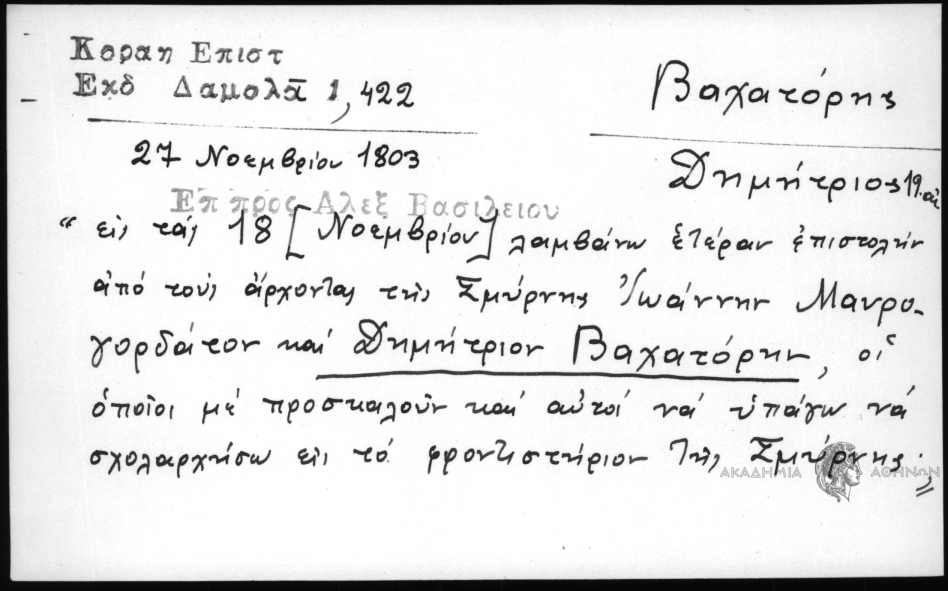 Κοραη Επιστ
Εκδ Δαμαλᾶ 1, 422
Βαχατόρης
27 Νοεμβρίου 1803
Δημήτριος 19. αἰ
Επ προς Αλεξ Βασιλειου
“ εἰς τάς 18 [Νοεμβρίου] λαμβάνω ἑτέραν ἐπιστολήν
ἀπό τούς ἄρχοντας τῆς Σμύρνης Ἰωάννην Μαυρο-
γορδάτον καί Δημήτριον Βαχατόρην, οἱ
ὁποῖοι μέ προσκαλοῦν καί αὐτοί νά ὑπάγω νά
σχολαρχήσω εἰς τό φροντιστήριον τῆς Σμύρνης·„
ΑΚΑΔΗΜΙΑ ΑΘΗΝΩΝ